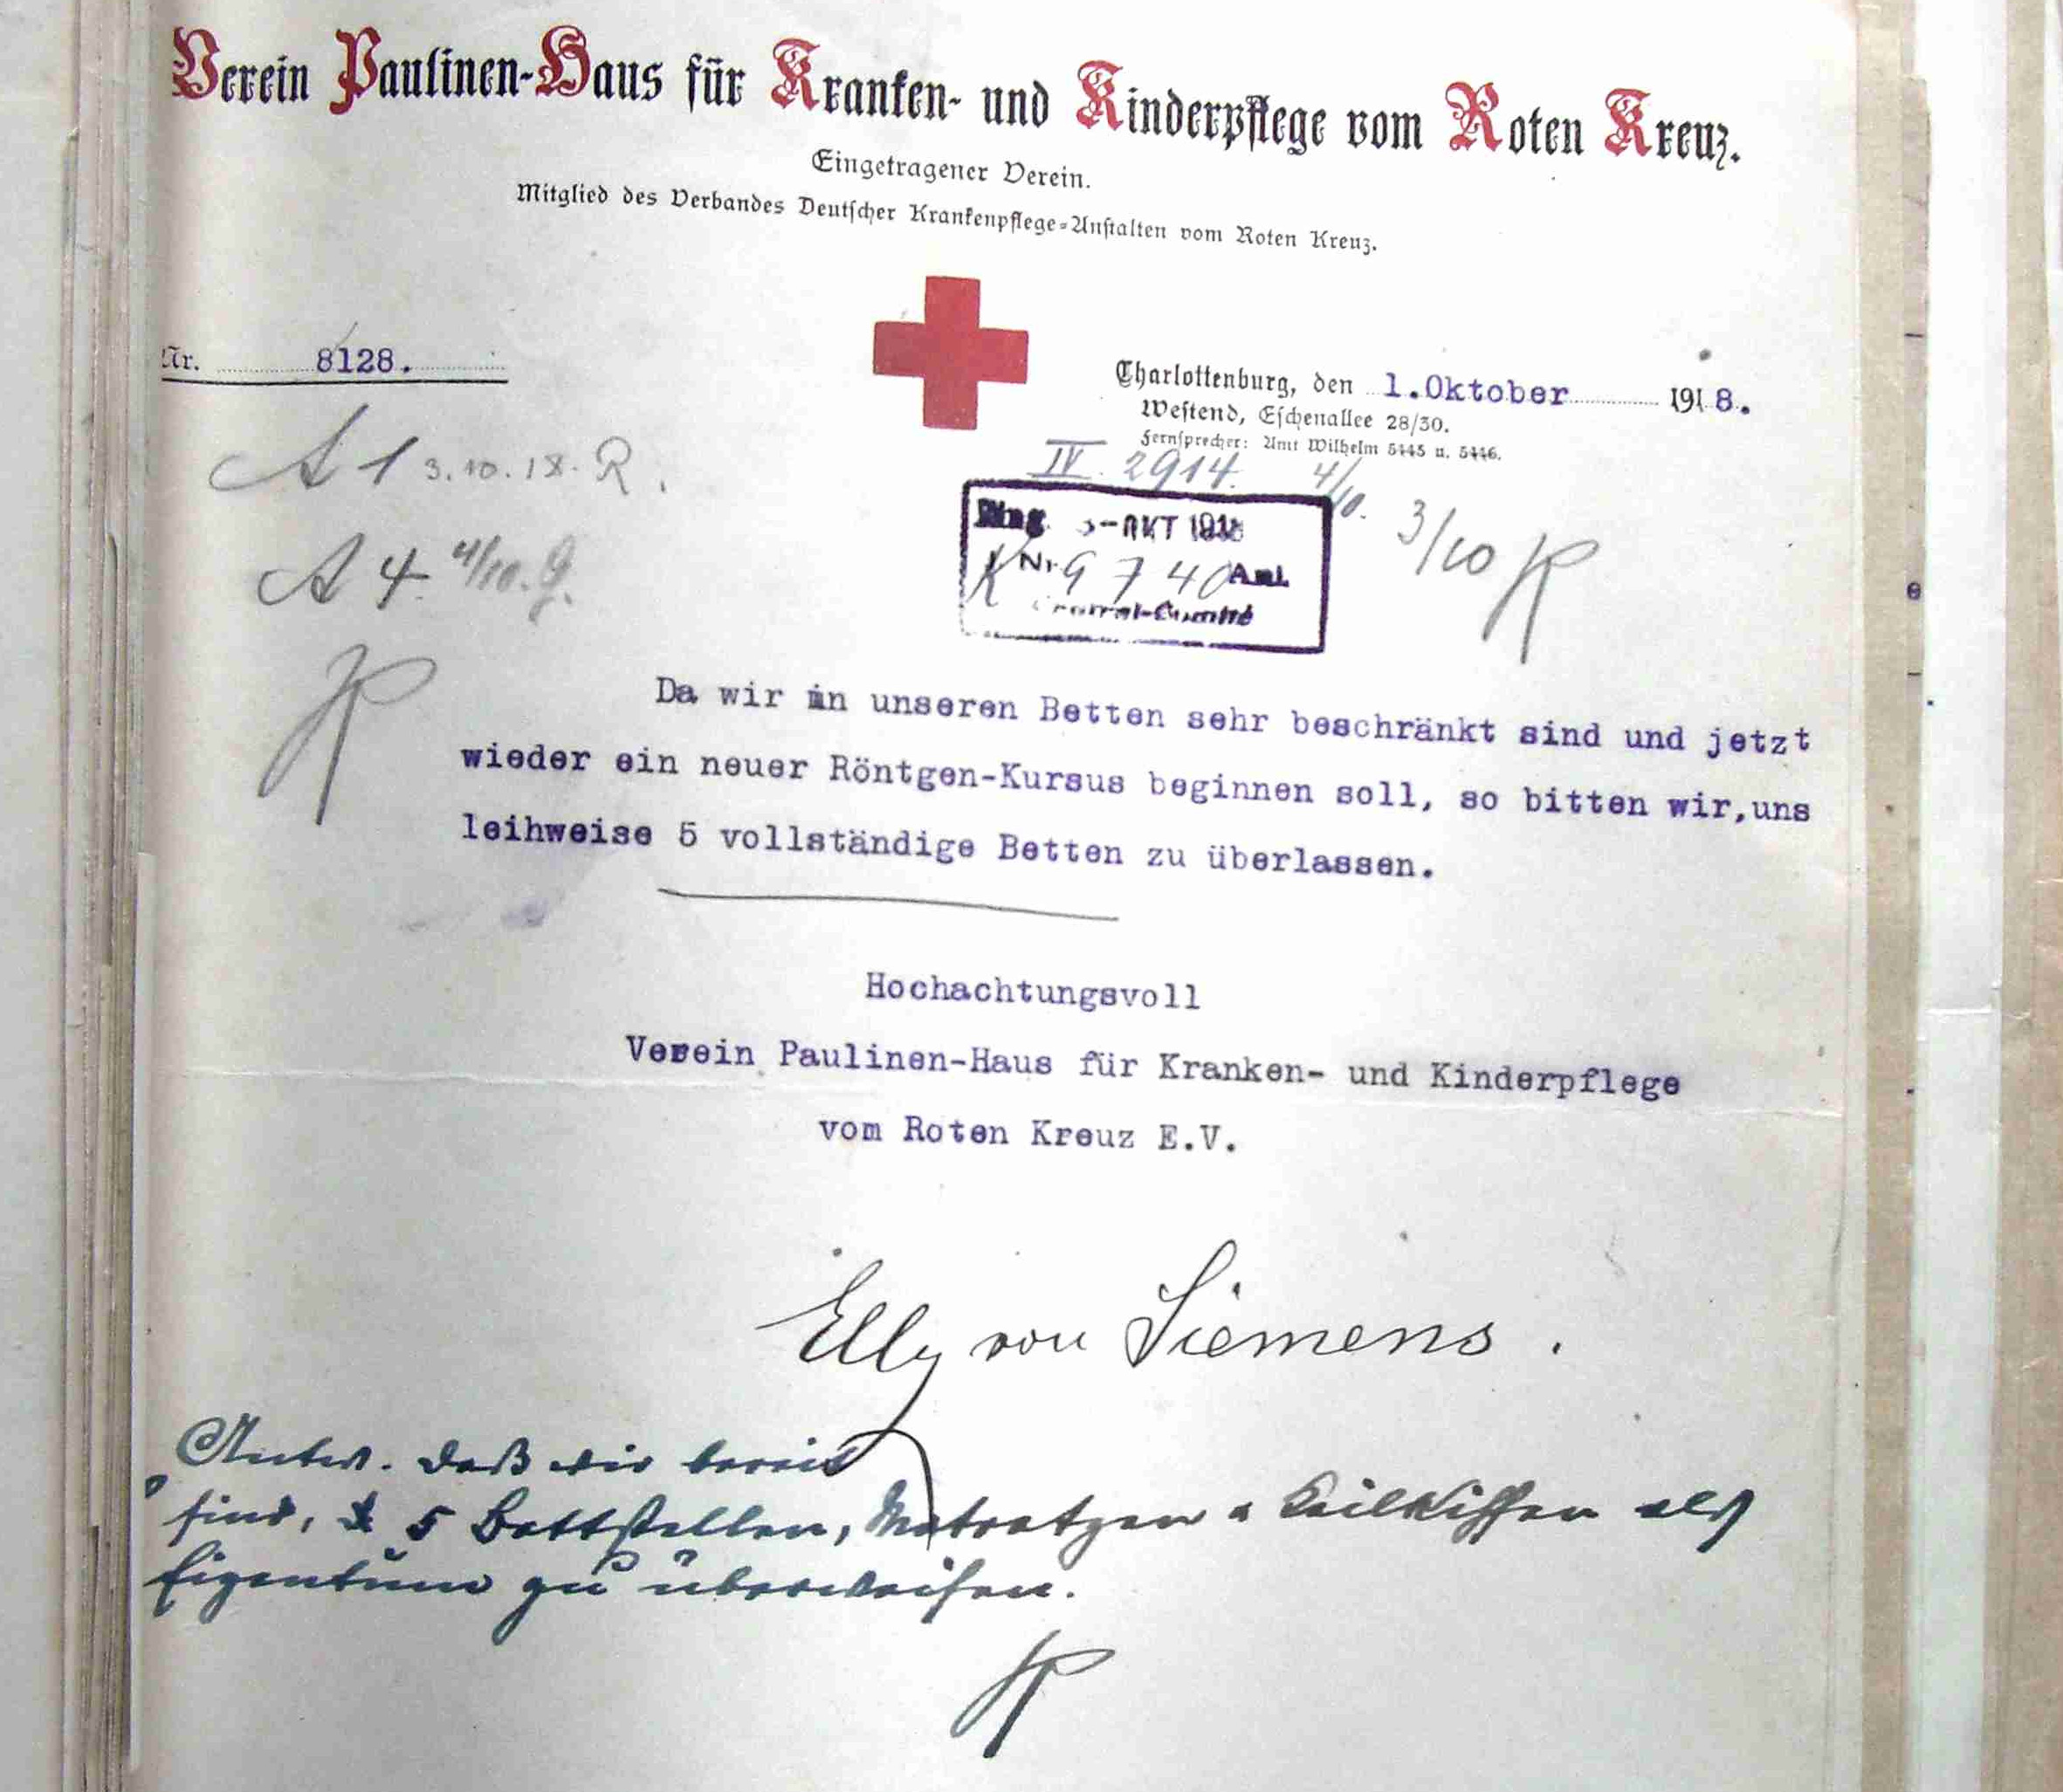 Verein Paulinen-Haus für Kranken- und Kinderpflege vom Roten Kreuz.
Eingetragener Verein.
Mitglied des Verbandes Deutscher Krankenpflege-Anstalten vom Roten Kreuz.
Nr. 8128.
Charlottenburg, den 1.Oktober 1918.
Westend, Eschenallee 28/30.
Fernsprecher: Amt Wilhelm 5445 u. 5446.
A 1 3.10.18. R.
IV. 2914. 4/10.
3/10
Eing. -OKT 1918
Nr. 9740 Anl.
Central-Comité
A 4. 4/10. G.
Da wir in unseren Betten sehr beschränkt sind und jetzt
wieder ein neuer Röntgen-Kursus beginnen soll, so bitten wir,uns
leihweise 5 vollständige Betten zu überlassen.
Hochachtungsvoll
Verein Paulinen-Haus für Kranken- und Kinderpflege
vom Roten Kreuz E.V.
Elly von Siemens.
Antw. daß wir bereit
sind, 5 Bettstellen, Matratzen u Keilkissen als
Eigentum zu überweisen.